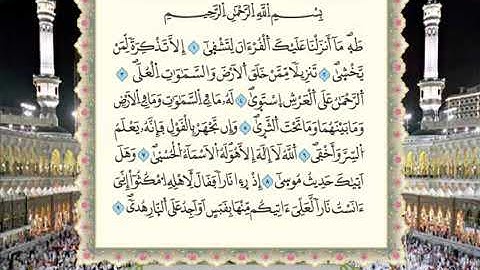 بِسْمِ اللَّهِ الرَّحْمَٰنِ الرَّحِيمِ
طَهَ مَا أَنزَلْنَا عَلَيْكَ الْقُرْءَانَ لِتَشْقَىٰ ١ إِلَّا تَذْكِرَةً لِّمَنْ
يَّخْشَىٰ ٢ تَنزِيلًا مِّمَّنْ خَلَقَ الْأَرْضَ وَالسَّمَٰوَٰتِ الْعُلَى ٣
الرَّحْمَٰنُ عَلَى الْعَرْشِ اسْتَوَىٰ ٤ لَهُ مَا فِي السَّمَٰوَٰتِ وَمَا فِي الْأَرْضِ
وَمَا بَيْنَهُمَا وَمَا تَحْتَ الثَّرَىٰ ٥ وَإِن تَجْهَرْ بِالْقَوْلِ فَإِنَّهُ يَعْلَمُ
السِّرَّ وَأَخْفَى ٦ اللَّهُ لَا إِلَٰهَ إِلَّا هُوَ لَهُ الْأَسْمَاءُ الْحُسْنَىٰ ٧ وَهَلْ
أَتَيٰكَ حَدِيثُ مُوسَىٰ ٨ إِذْ رَءَا نَارًا فَقَالَ لِأَهْلِهِ امْكُثُوا إِنِّيَ
ءَانَسْتُ نَارًا لَّعَلِّيَ ءَاتِيكُم مِّنْهَا بِقَبَسٍ أَوْ أَجِدُ عَلَى النَّارِ هُدًى ٩